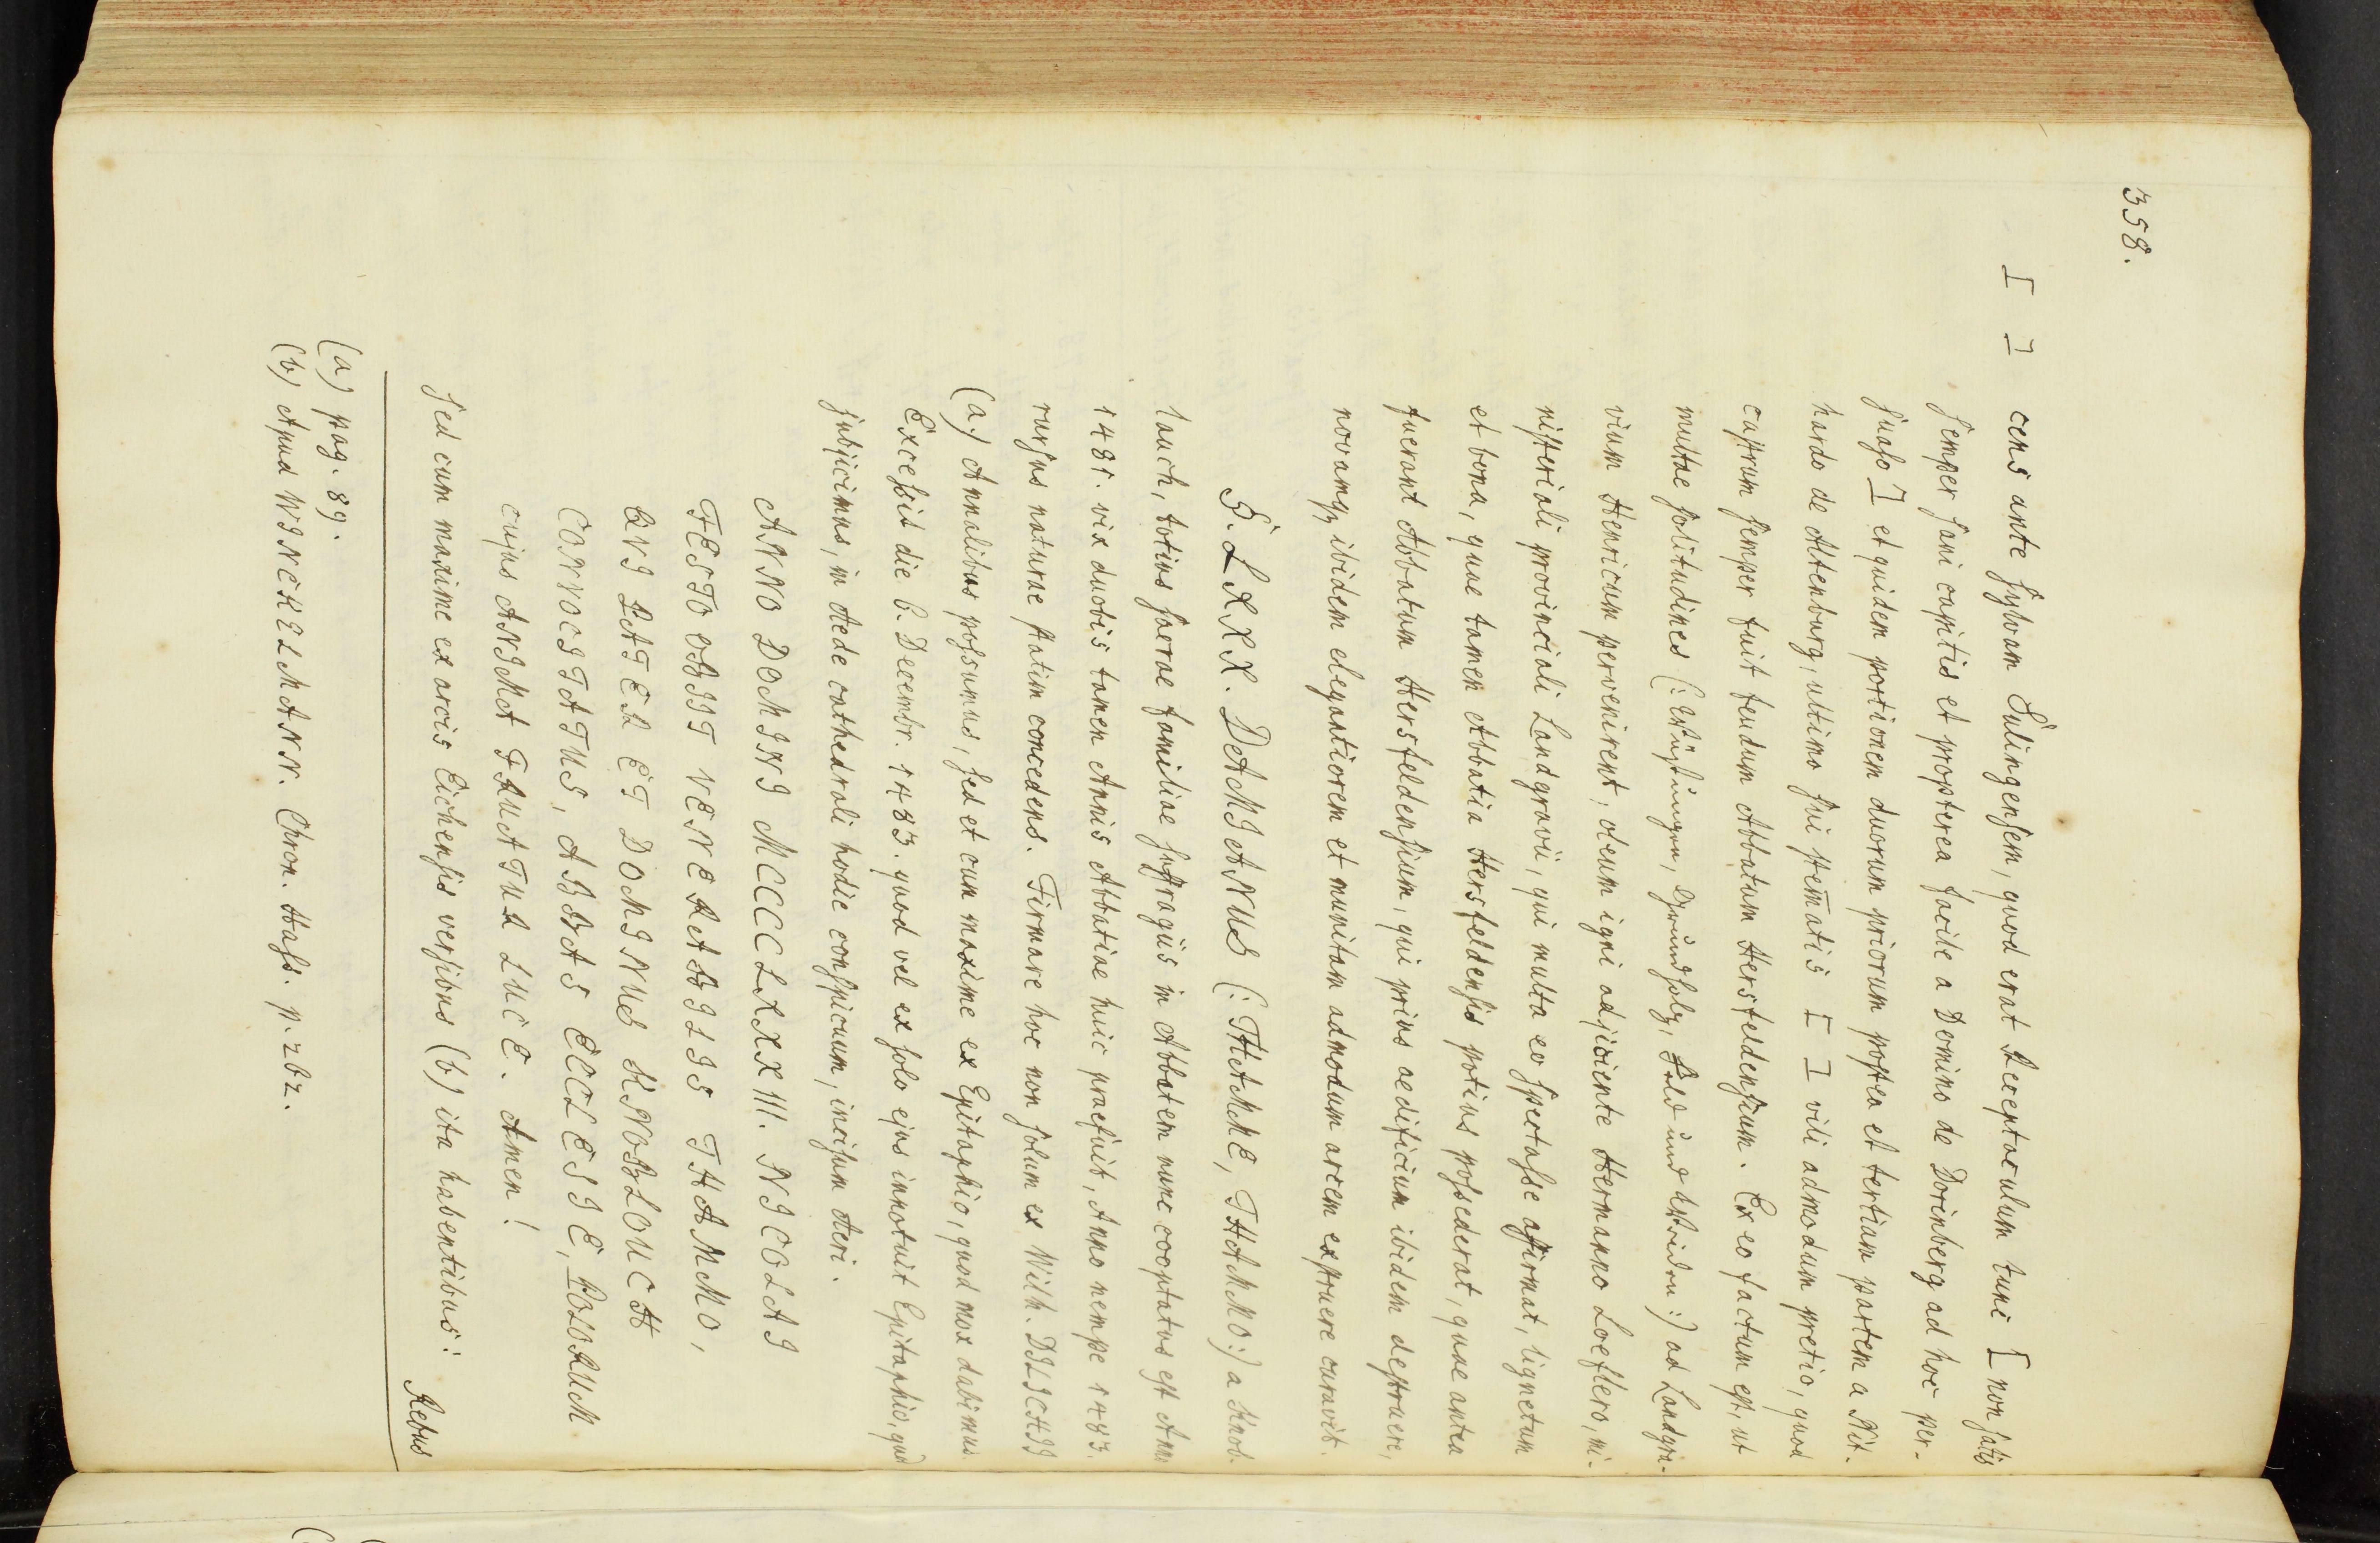 358.
[ ] cens ante Sylvam Sulingensem, quod erat Receptaculum tunc [ non satis
semper sani capitis et propterea facile a Domino de Dörinberg ad hoc per-
suaso ] et quidem portionem duorum priorum postea et tertiam partem a Nit-
hardo de Altenburg, ultimo sui stem̄atis [ ] vili admodum pretio, quod
castrum semper fuit feudum Abbatum Hersfeldensium. Ex eo factum est, ut
multae solitudines (: Wüstungen, Grundholz, Feld und Weiden :) ad Landgra-
vium Henricum pervenirent, oleum igni adjiciente Hermanno Loeflero, mi-
nisteriali provinciali Landgravii, qui multa eo spectasse affirmat, lignetum
et bona, quae tamen Abbatia Hersfeldensis potius possederat, quae antea
fuerant Abbatum Hersfeldensium, qui prius aedificium ibidem destruere,
novamqz ibidem elegantiorem et munitam admodum arcem exstruere curavit.
§. LXXX. DAMIANUS (: THAMME, THAMMO :) a Knob-
lauch, totius sacrae familiae suffragiis in Abbatem nunc cooptatus est Anno
1481. vix duobis tamen Annis Abbatiae huic praefuit, Anno nempe 1483.
rursus naturae statim concedens. Firmare hoc non solum ex Wilh. DILICHII
(a) Annalibus possumus, sed et cum maxime ex Epitaphio, quod mox dabimus.
Excessit die 6. Decembr. 1483. quod vel ex solo ejus innotuit Epitaphio, quod
subjicimus, in Aede cathedrali hodie conspicuum, incisum Aeri.
ANNO DOMINI MCCCCLXXXIII. NICOLAI
FESTO OBIIT VENERABILIS THAMMO,
QVI PATER ET DOMINUS KNOBLOUCH
CONNOCITATUS, ABBAS ECCLESIE, POLORUM
cujus ANIMA FRUATUR LUCE. Amen!
sed cum maxime ex arcis Eichensis versibus (b) ita habentibus:
Rebus
(a) pag. 89.
(b) Apud WINCKELMANN. Chron. Hass. p. 262.